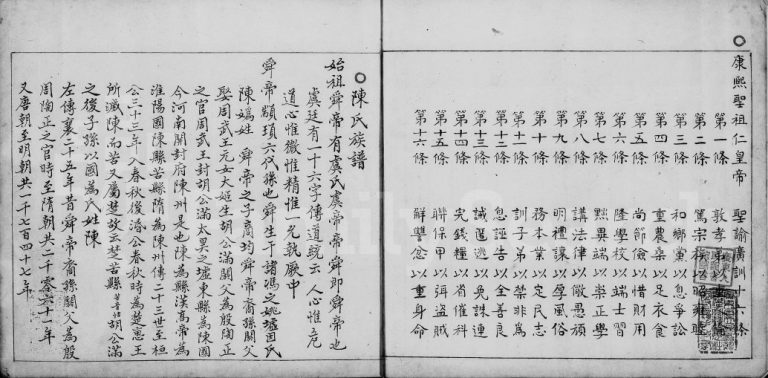 康熙聖祖仁皇帝 聖諭廣訓十六條
第一條 敦孝弟以重人倫
第二條 篤宗族以昭雍睦
第三條 和鄉黨以息爭訟
第四條 重農桑以足衣食
第五條 尚節儉以惜財用
第六條 隆學校以端士習
第七條 黜異端以崇正學
第八條 講法律以儆愚頑
第九條 明禮讓以厚風俗
第十條 務本業以定民志
第十一條 訓子弟以禁非為
第十二條 息誣告以全善良
第十三條 誡匿逃以免誅連
第十四條 完錢糧以省催科
第十五條 聯保甲以弭盜賊
第十六條 解讐忿以重身命
陳氏族譜
始祖舜帝有虞氏虞帝帝舜即舜帝也
虞廷有一十六字傳道統云 人心惟危
道心惟微惟精惟一允執厥中
舜帝顓頊六代孫也舜生于諸馮之姚墟因氏
陳媯姓 舜帝之子商均舜帝裔孫閼父
娶周武王元女大姬生胡公滿閼父為殷陶正
之官周武王封胡公滿太昊之墟東縣為陳國
今河南開封府陳州是也陳為縣漢高帝為
淮陽國陳縣苦縣隋為陳州傳二十三世至桓
公三十三年入春秋後濬公春秋時為楚惠王
所滅陳而苦又屬楚故云楚苦縣 胡公滿
之後子孫以國為氏姓陳
左傳襄二十五年昔舜帝裔孫閼父為殷
周陶正之官時至隋朝共二千零六十一年
又唐朝至明朝共一千七百四十七年